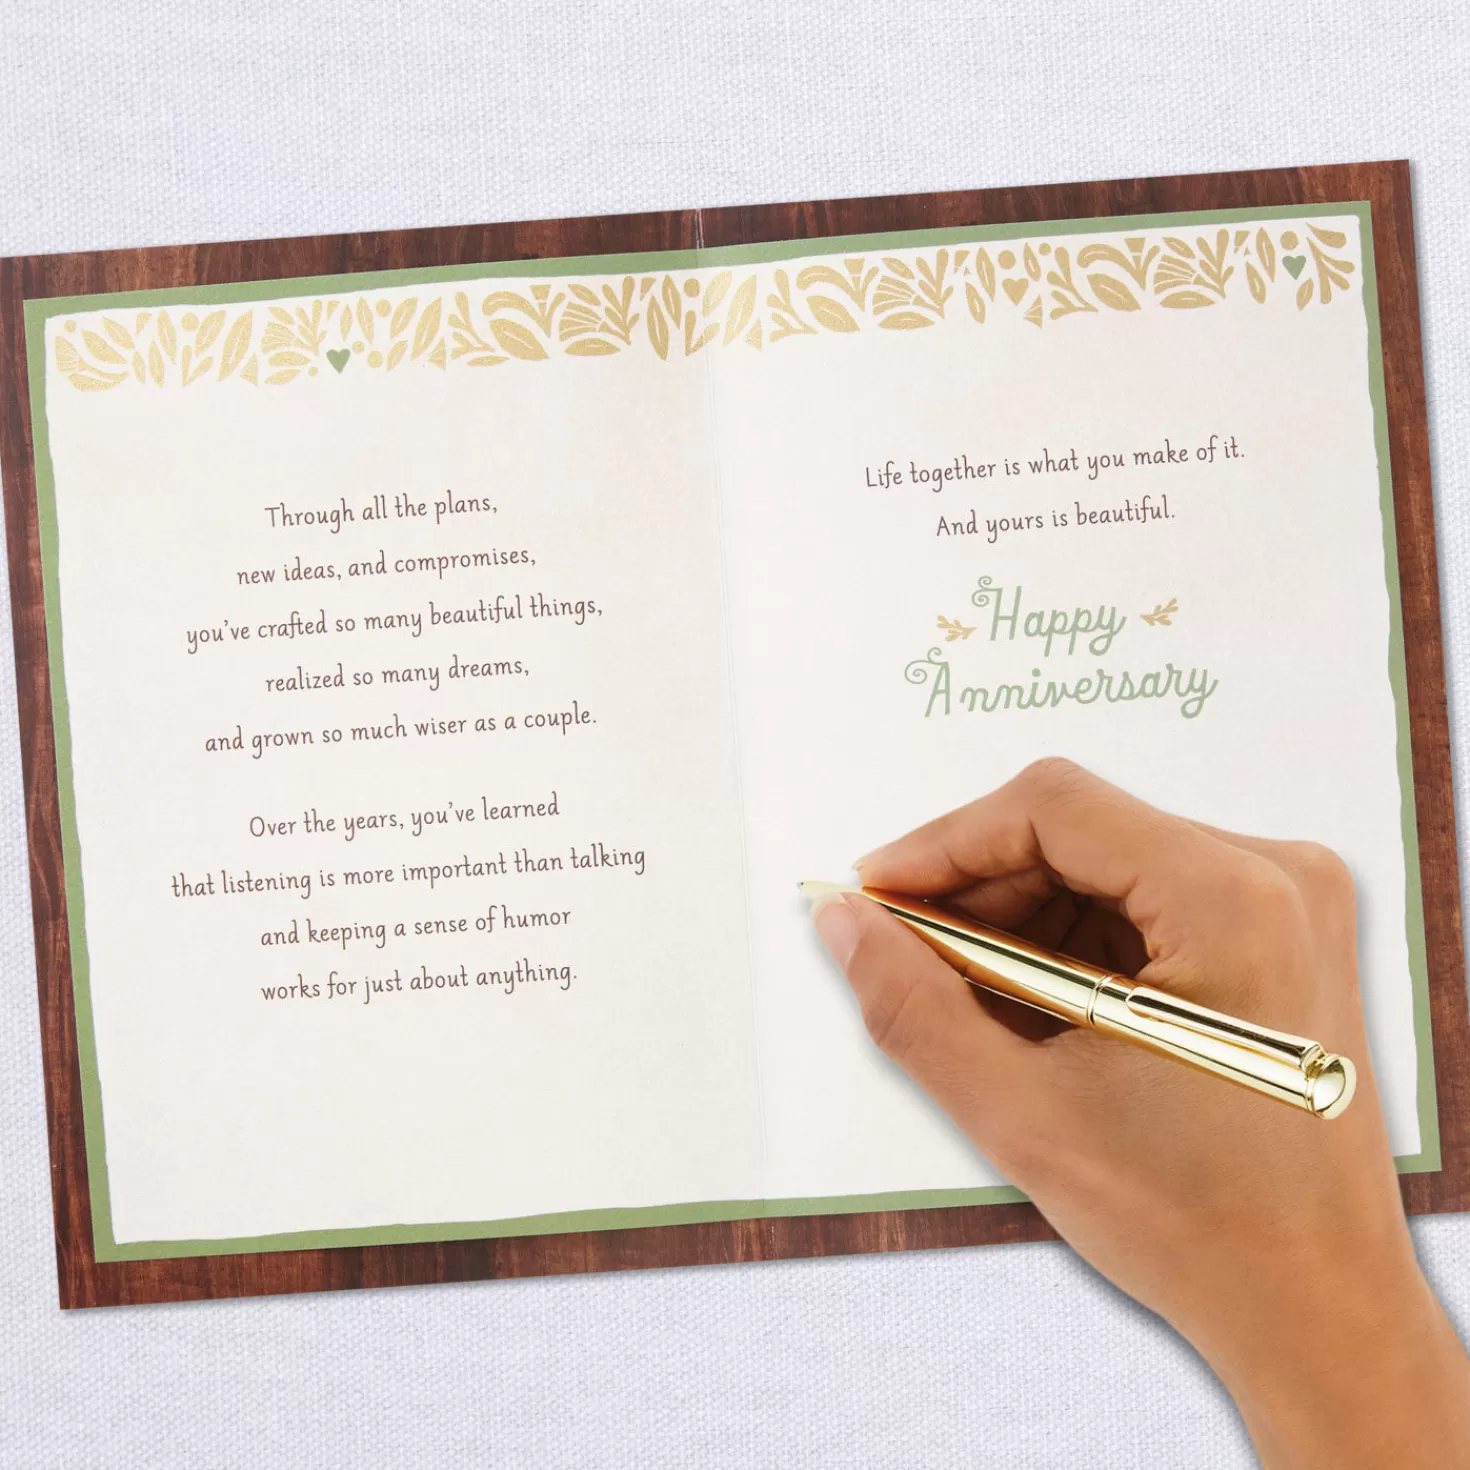 Through all the plans,
new ideas, and compromises,
you've crafted so many beautiful things,
realized so many dreams,
and grown so much wiser as a couple.
Over the years, you've learned
that listening is more important than talking
and keeping a sense of humor
works for just about anything.
Life together is what you make of it.
And yours is beautiful.
Happy
Anniversary